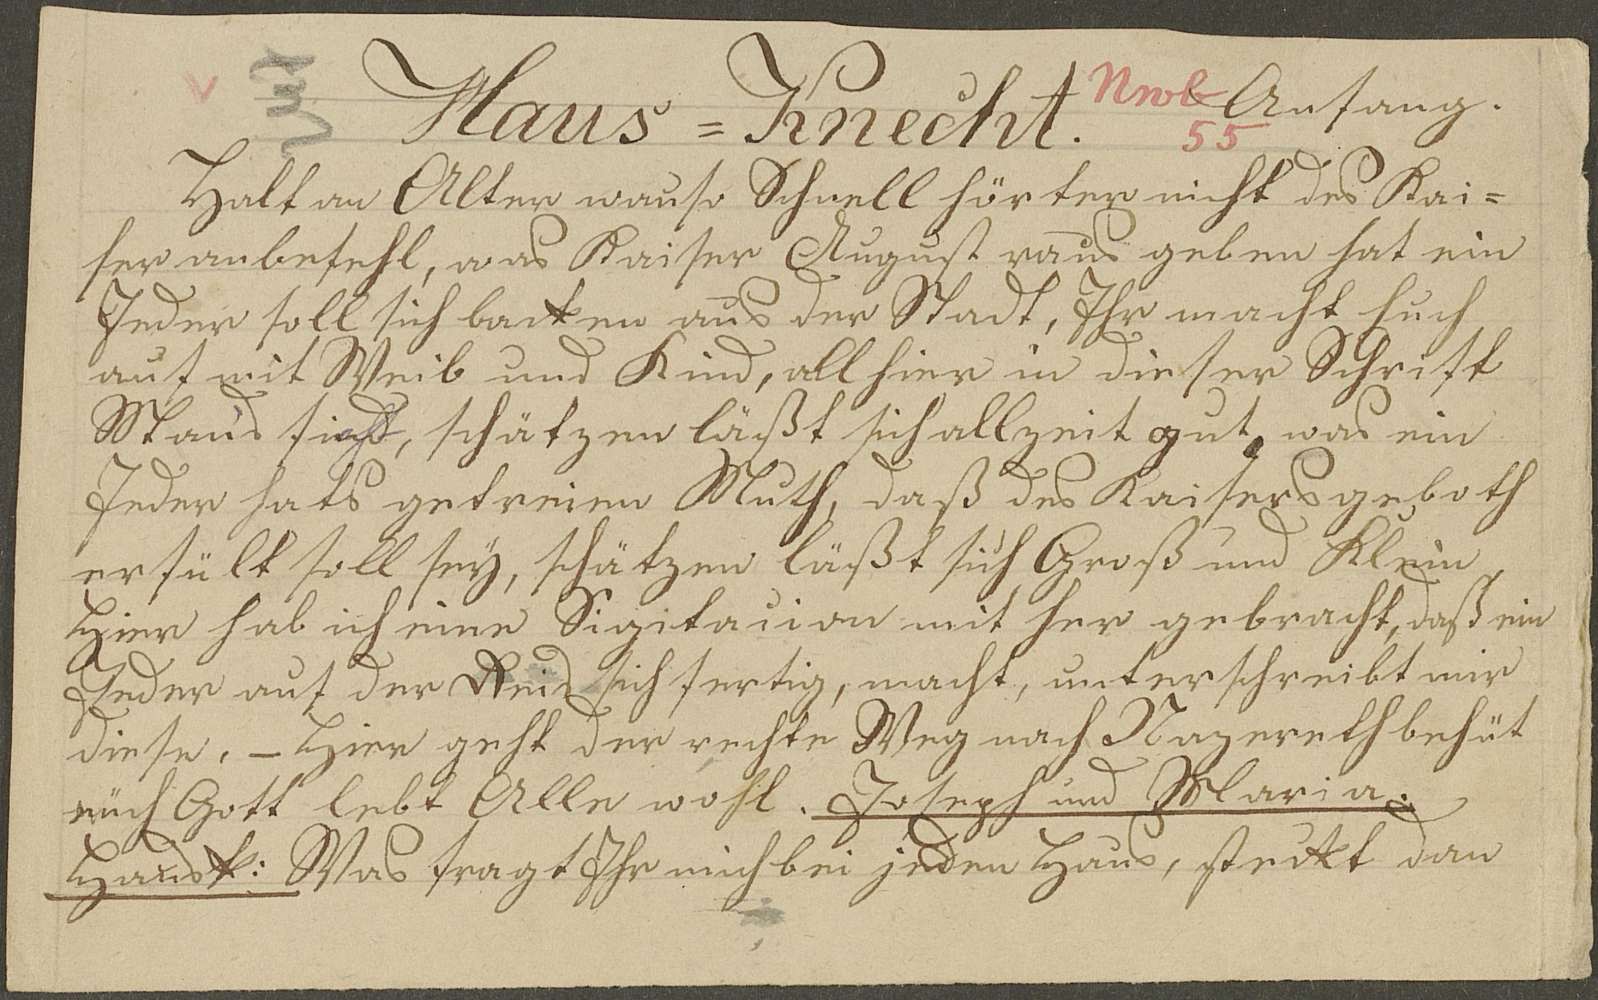 Haus = Knecht. Anfang.
55
Halt an Alter wauso Schnell hörter nicht des Kai=
ser anbefehl, was Kaiser August raus geben hat ein
Jeder soll sich backen aus der Stadt, Ihr macht huch
auf mit Weib und Kind, allhier in dieser Schrift
Staud sicht, schätzen läßt sich allzeit gut, was ein
Jeder hats getreien Muth, daß des Kaisers geboth
erfült soll sey, schätzen läßt sich Groß und Klein,
Hier hab ich eine Sigitacion mit her gebracht, daß ein
Jeder auf der Reis sich fertig, macht, unterschreibt mir
diese. – Hier geht der rechte Weg nach Nazereth behüt
eüch Gott lebt Alle wohl. Joseph und Maria.
Hausk: Was fragt Ihr mich bei jeden Haus, steckt dan